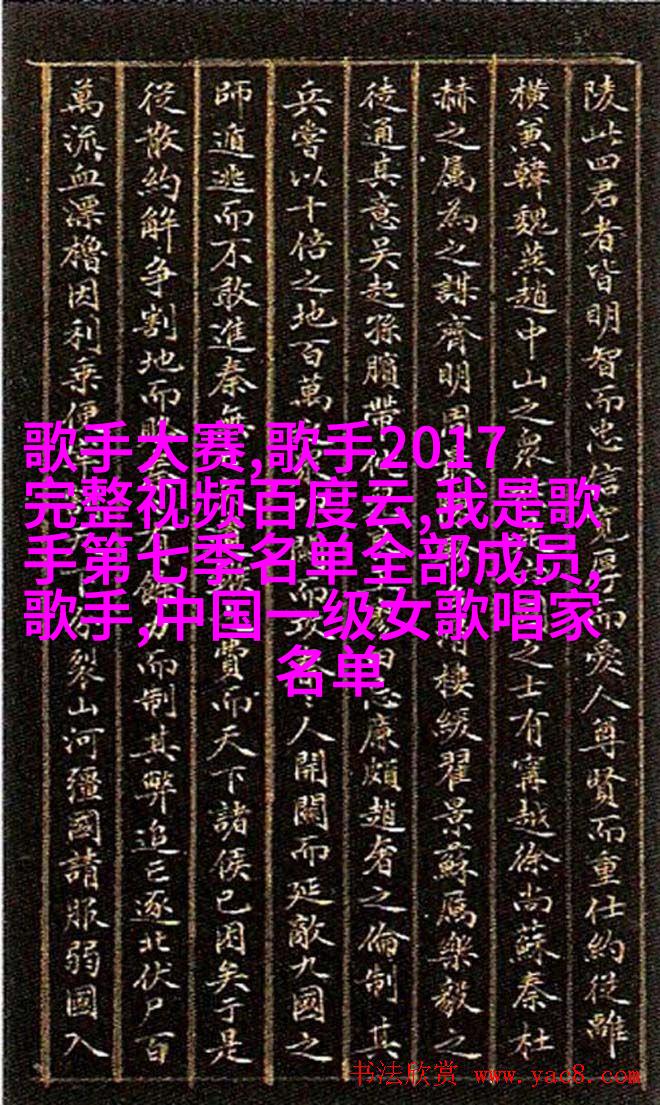 陵此四君者皆明智而忠信寬厚而愛人尊賢而重仕約從離
橫兼韓魏燕趙中山之衆之士有甯越徐尚蘇秦杜
赫之屬為之謀齊明周樓緩翟景蘇厲樂毅之
徒通其意吳起孫臏帶忌廉頗趙奢之倫制其
兵嘗以十倍之地百萬而攻人開關而延敵九國之
師遁逃而不敢進秦無費而天下諸侯已困矣于是
從散約解爭割地而賂力而制其弊追亡逐北伏尸百
萬流血漂櫓因利乘便裂山河彊國請服弱國入
歌手大赛,歌手2017
完整视频百度云,我是歌
手第七季名单全部成员,
歌手,中国一级女歌唱家
名单
书法欣赏 www.yac8.com